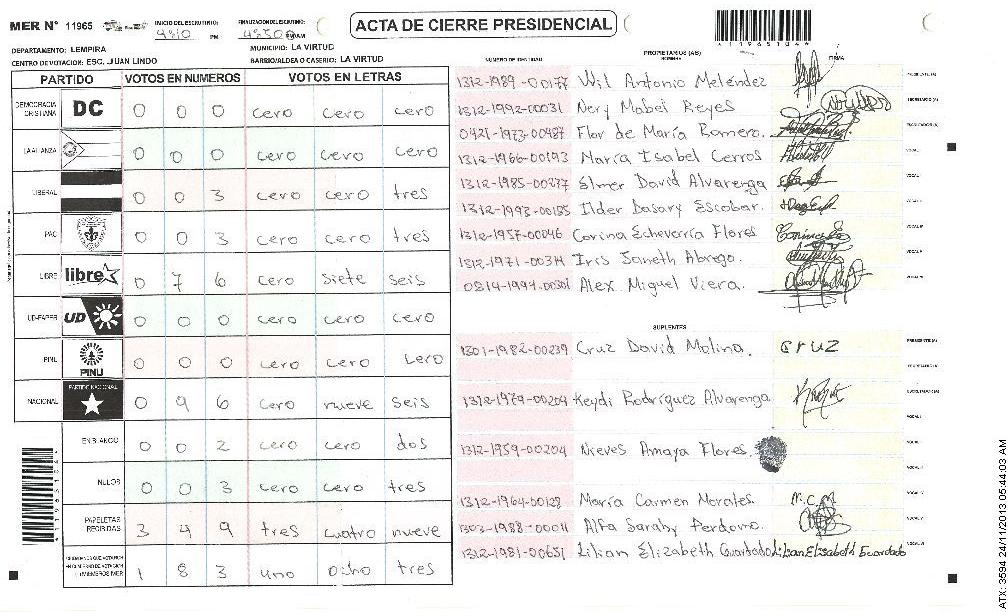 MER N° 11965
INICIO DEL ESCRUTINIO:
FINALIZACION DEL ESCRUTINIO:
ACTA DE CIERRE PRESIDENCIAL
DEPARTAMENTO: LEMPIRA
MUNICIPIO: LA VIRTUD
CENTRO DE VOTACION: ESC. JUAN LINDO
BARRIO/ALDEA O CASERIO: LA VIRTUD
PARTIDO VOTOS EN NUMEROS VOTOS EN LETRAS
DEMOCRACIA CRISTIANA DC 0 0 0 cero cero cero
LA ALIANZA 0 0 0 cero cero cero
LIBERAL 0 0 3 cero cero tres
PAC 0 0 3 cero cero tres
LIBRE libre 0 7 6 cero siete seis
UD-FAPER UD 0 0 0 cero cero cero
PINU PINU 0 0 0 cero cero cero
NACIONAL PARTIDO NACIONAL 0 9 6 cero nueve seis
EN BLANCO 0 0 2 cero cero dos
NULOS 0 0 3 cero cero tres
PAPELETAS RECIBIDAS 3 4 9 tres cuatro nueve
1 8 3 uno ocho tres
NUMERO DE IDENTIDAD PROPIETARIOS (AS) NOMBRE FIRMA
1312-1989-00177 Wil Antonio Meléndez
1312-1992-00031 Nery Mabel Reyes
0421-1973-00487 Flor de María Romero.
1312-1966-00193 María Isabel Cerros
1312-1985-00277 Elmer David Alvarenga
1312-1993-00185 Ilder Dasary Escobar.
1312-1957-00046 Corina Echeverría Flores
1312-1971-00314 Iris Janeth Abrego.
Alex Miguel Viera.
SUPLENTES
1301-1982-00239 Cruz David Molina. cruz
1312-1979-00204 Keydi Rodríguez Alvarenga
1312-1959-00204 Nieves Amaya Flores.
1312-1964-00128 María Carmen Morales. M.C.M
1303-1988-00011 Alfa Sarahy Perdomo.
1312-1981-00651 Lilian Elizabeth Guardado Lilian Elisabeth Guardado
ATX: 3594 24/11/2013 05:44:03 AM